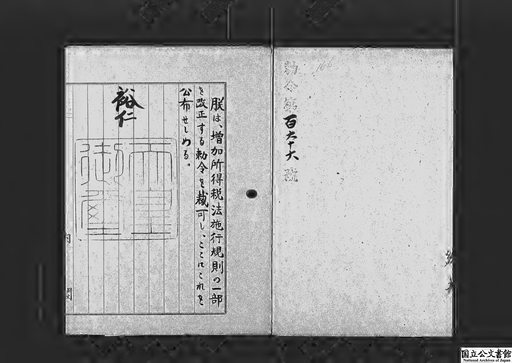 勅令第百六十六號
朕は、増加所得税法施行規則の一部
を改正する勅令を裁可し、ここにこれを
公布せしめる。
裕仁
天皇御璽
内閣
国立公文書館
National Archives of Japan